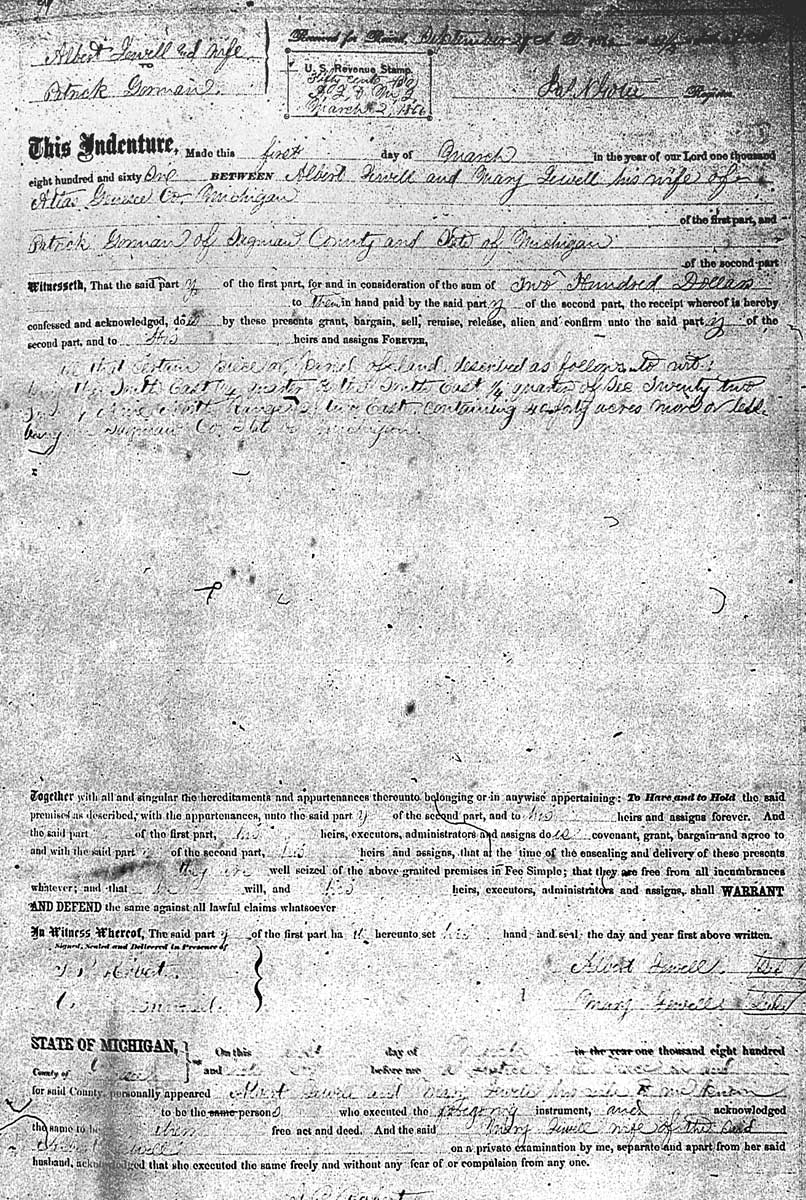 Albert Jewell and Wife
TO
Patrick Gorman
Received for Record, September
U. S. Revenue Stamp
Fifty cents
March 2, 186
Register.
This Indenture, Made this first day of March in the year of our Lord one thousand
eight hundred and sixty BETWEEN Albert Jewell and Mary Jewell his wife of
Genesee Co, Michigan
of the first part, and
Patrick Gorman of Saginaw County and State of Michigan
of the second part
Witnesseth, That the said part y of the first part, for and in consideration of the sum of Two Hundred Dollars
to them in hand paid by the said part y of the second part, the receipt whereof is hereby
confessed and acknowledged, do by these presents grant, bargain, sell, remise, release, alien and confirm unto the said part y of the
second part, and to his heirs and assigns FOREVER,
that certain piece or parcel of land described as follows to wit:
South East 1/4 quarter of the South East 1/4 quarter of Sec Twenty two
North Range East containing 40 forty acres more or less
being Saginaw Co. State of Michigan
Together with all and singular the hereditaments and appurtenances thereunto belonging or in anywise appertaining: To Have and to Hold the said
premises as described, with the appurtenances, unto the said part y of the second part, and to his heirs and assigns forever. And
the said part of the first part, his heirs, executors, administrators and assigns do covenant, grant, bargain and agree to
and with the said part of the second part, his heirs and assigns, that at the time of the ensealing and delivery of these presents
they are well seized of the above granted premises in Fee Simple; that they are free from all incumbrances
whatever; and that he will, and his heirs, executors, administrators and assigns, shall WARRANT
AND DEFEND the same against all lawful claims whatsoever
In Witness Whereof, The said part y of the first part ha hereunto set his hand and seal the day and year first above written.
Signed, Sealed and Delivered in Presence of
Albert Jewell
Mary Jewell
STATE OF MICHIGAN,
County of
On this day of March in the year one thousand eight hundred
and before me a
for said County, personally appeared Albert Jewell and Mary Jewell his wife to me known
to be the same persons who executed the foregoing instrument, and acknowledged
the same to be their free act and deed. And the said Mary Jewell wife of the said
Jewell on a private examination by me, separate and apart from her said
husband, acknowledged that she executed the same freely and without any fear of or compulsion from any one.